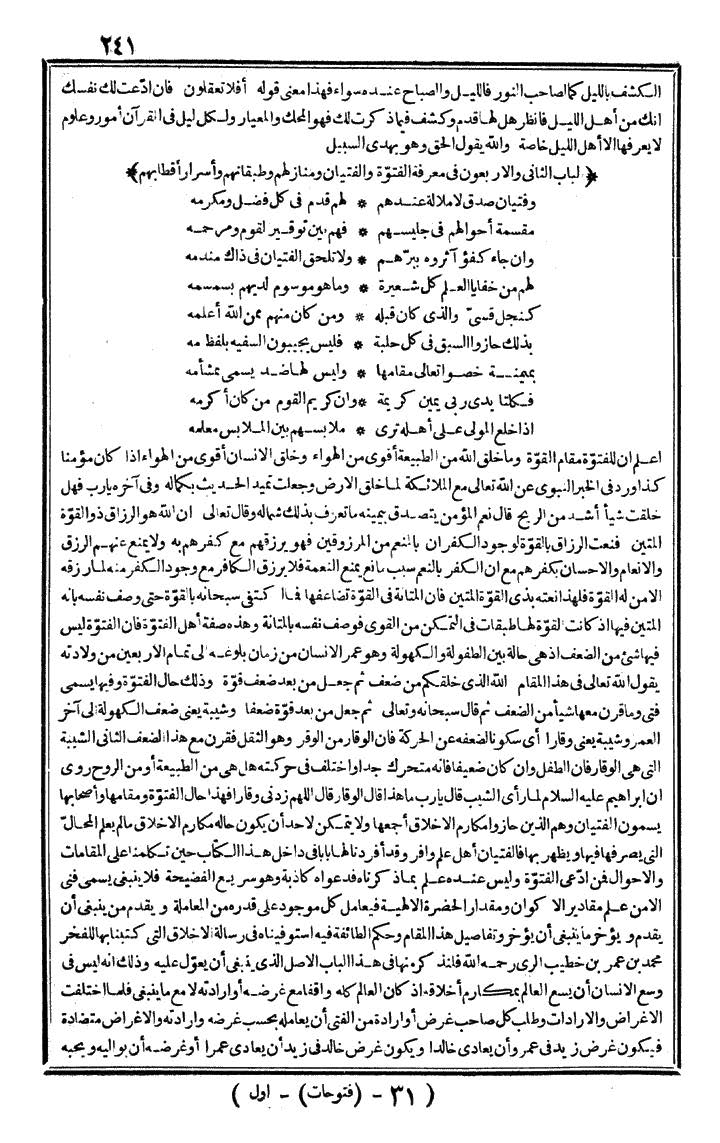 ٢٤١
الكشف بالليل كما لصاحب النور فالليل والصباح عنده سواء فهذا معنى قوله أفلا تعقلون فان ادّعت لك نفسك
انك من أهل الليل فانظر هل لها قدم وكشف فيما ذكرت لك فهو المحك والمعيار ولكل ليل في القرآن أمور وعلوم
لا يعرفها الا أهل الليل خاصة والله يقول الحق وهو يهدى السبيل
﴿لباب الثاني والاربعون فى معرفة الفتوّة والفتيان ومنازلهم وطبقاتهم وأسرار أقطابهم﴾
وفتيان صدق لا ملالة عندهم * لهم قدم فى كل فضل ومكرمه
مقسمة أحوالهم فى جليسهم * فهم بين توقير لقوم ومرحمه
وان جاء كفؤ آثروه ببرّهم * ولا تلحق الفتيان فى ذاك مندمه
لهم من خفايا العلم كل شعيرة * وما هو موسوم لديهم بسمسمه
كنجل قسىّ والذى كان قبله * ومن كان منهم ممن الله أعلمه
بذلك حازوا السبق فى كل حلبة * فليس يجيبون السفيه بلفظ مه
بميمنة خصوا تعالى مقامها * وليس لها ضد يسمى بمشأمه
فكلتا يدى ربى يمين كريمة * وان كريم القوم من كان أكرمه
اذا خلع المولى على أهله ترى * ملابسهم بين الملابس معلمه
اعلم ان للفتوّة مقام القوّة وما خلق الله من الطبيعة أقوى من الهواء وخلق الانسان أقوى من الهواء اذا كان مؤمنا
كذا ورد فى الخبر النبوى عن الله تعالى مع الملائكة لما خلق الارض وجعلت تميد الحديث بكماله وفى آخره يارب فهل
خلقت شيأ أشد من الريح قال نعم المؤمن يتصدق بيمينه ما تعرف بذلك شماله وقال تعالى ان الله هو الرزاق ذو القوّة
المتين فنعت الرزاق بالقوة لوجود الكفران بالمنعم من المرزوقين فهو يرزقهم مع كفرهم به ولا يمنع عنهم الرزق
والانعام والاحسان بكفرهم مع ان الكفر بالنعم سبب مانع يمنع النعمة فلا يرزق الكافر مع وجود الكفر منه لما رزقه
الا من له القوّة فلهذا نعته بذى القوّة المتين فان المتانة فى القوّة تضاعفها فما اكتفى سبحانه بالقوّة حتى وصف نفسه بانه
المتين فيها اذ كانت القوّة لها طبقات فى التمكن من القوى فوصف نفسه بالمتانة وهذه صفة أهل الفتوّة فان الفتوّة ليس
فيها شئ من الضعف اذ هى حالة بين الطفولة والكهولة وهو عمر الانسان من زمان بلوغه الى تمام الاربعين من ولادته
يقول الله تعالى فى هذا المقام الله الذى خلقكم من ضعف ثم جعل من بعد ضعف قوّة وذلك حال الفتوّة وفيها يسمى
فتى وما قرن معها شيأ من الضعف ثم قال سبحانه وتعالى ثم جعل من بعد قوّة ضعفا وشيبة يعنى ضعف الكهولة الى آخر
العمر وشيبة يعنى وقارا أى سكونا لضعفه عن الحركة فان الوقار من الوقر وهو الثقل فقرن مع هذا الضعف الثانى الشيبة
التى هى الوقار فان الطفل وان كان ضعيفا فانه متحرك جدا واختلف فى حركته هل هى من الطبيعة أو من الروح روى
ان ابراهيم عليه السلام لما رأى الشيب قال يارب ما هذا قال الوقار قال اللهم زدنى وقارا فهذا حال الفتوّة ومقامها وأصحابها
يسمون الفتيان وهم الذين حازوا مكارم الاخلاق أجمعها ولا يتمكن لاحد أن يكون حاله مكارم الاخلاق مالم يعلم المحالّ
التى يصرفها فيها ويظهر بها فالفتيان أهل علم وافر وقد أفردنا لها بابا فى داخل هذا الكتاب حين تكلمنا على المقامات
والاحوال فمن ادّعى الفتوّة وليس عنده علم بما ذكرناه فدعواه كاذبة وهو سريع الفضيحة فلا ينبغى يسمى فتى
الا من علم مقادير الاكوان ومقدار الحضرة الالهية فيعامل كل موجود على قدره من المعاملة ويقدم من ينبغى أن
يقدم ويؤخر ما ينبغى أن يؤخر وتفاصيل هذا المقام وحكم الطائفة فيه استوفيناه فى رسالة الاخلاق التى كتبنا بها للفخر
محمد بن عمر بن خطيب الرى رحمه الله فلنذكر منها فى هذا الباب الاصل الذى ينبغى أن يعوّل عليه وذلك انه ليس فى
وسع الانسان أن يسع العالم بمكارم أخلاقه اذ كان العالم كله واقفا مع غرضه أو ارادته لا مع ما ينبغى فلما اختلفت
الاغراض والارادات وطلب كل صاحب غرض أو ارادة من الفتى أن يعامله بحسب غرضه وارادته والاغراض متضادة
فيكون غرض زيد فى عمرو أن يعادى خالدا ويكون غرض خالد فى زيد أن يعادى عمرا أو غرضه أن يواليه ويحبه
( ٣١ - (فتوحات) - اول )